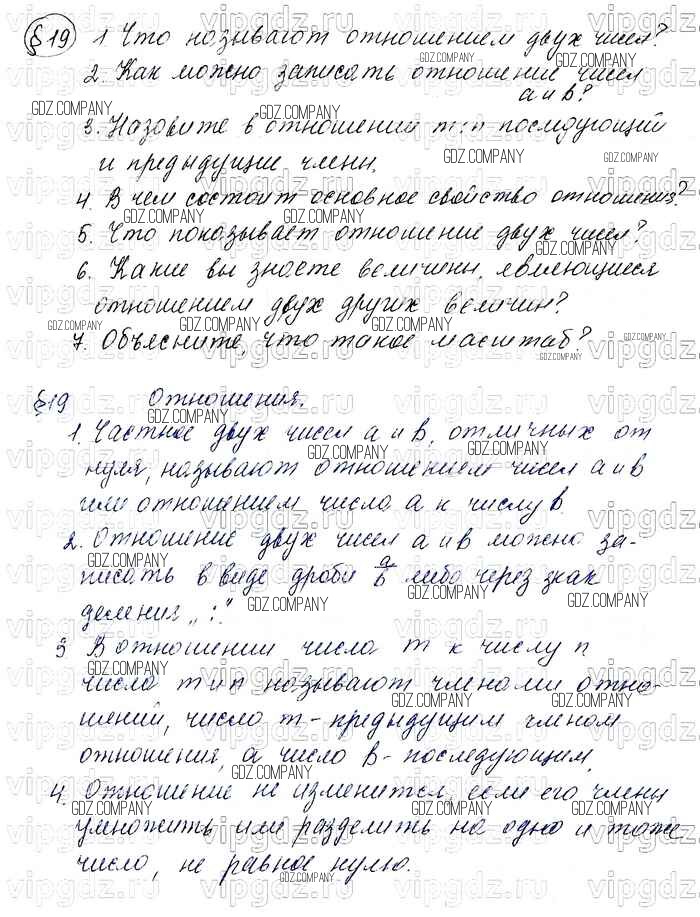 § 19 1 Что называют отношением двух чисел?
2. Как можно записать отношение чисел
a и b?
3. Назовите в отношении m:n последующий
и предыдущие члены.
4. В чем состоит основное свойство отношения?
5. Что показывает отношение двух чисел?
6. Какие вы знаете величины, являющиеся
отношением двух других величин?
7. Объясните, что такое масштаб?
§ 19 Отношения.
1. Частное двух чисел a и b, отличных от
нуля, называют отношением чисел a и b
или отношением числа a к числу b.
2. Отношение двух чисел a и b можно за-
писать в виде дроби a/b либо через знак
деления „:“
3 В отношении числа m к числу n
числа m и n называют членами отно-
шений, число m - предыдущим членом
отношения, а число b - последующим.
4. Отношение не изменится, если его члены
умножить или разделить на одно и тоже
число, не равное нулю.
vipgdz.ru
GDZ.COMPANY